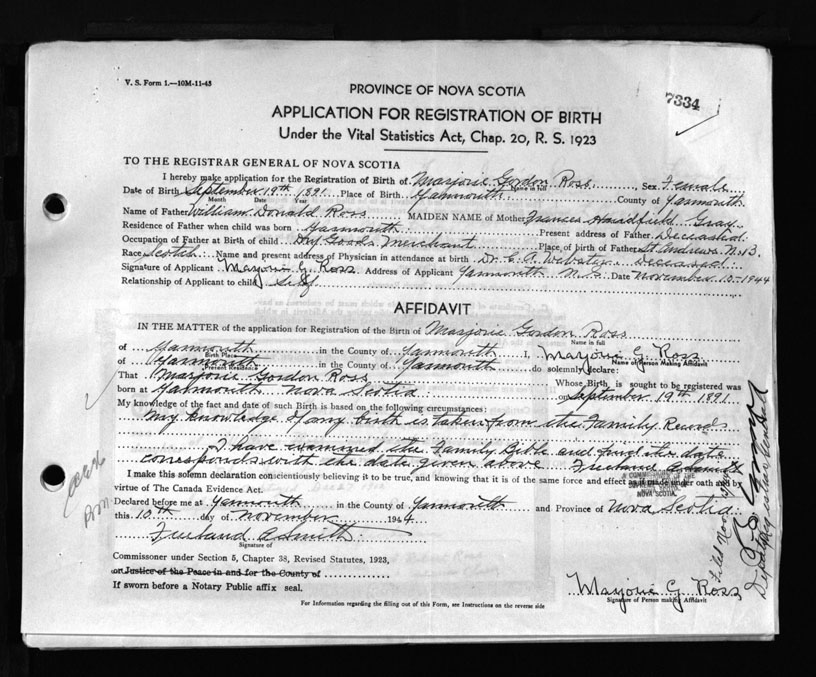 V. S. Form 1.—10M-11-43
PROVINCE OF NOVA SCOTIA
7334
APPLICATION FOR REGISTRATION OF BIRTH
Under the Vital Statistics Act, Chap. 20, R. S. 1923
TO THE REGISTRAR GENERAL OF NOVA SCOTIA
I hereby make application for the Registration of Birth of Marjorie Gordon Ross Sex Female
Name in full
Date of Birth September 19th 1891 Place of Birth Yarmouth County of Yarmouth
Month Date Year
Name of Father William Donald Ross MAIDEN NAME of Mother Frances Gray
Residence of Father when child was born Yarmouth Present address of Father Deceased
Occupation of Father at Birth of child Dry Goods Merchant Place of birth of Father St Andrews N.B.
Race Scotch Name and present address of Physician in attendance at birth Dr. Webster Deceased
Signature of Applicant Marjorie G. Ross Address of Applicant Yarmouth N.S. Date November 10-1944
Relationship of Applicant to child Self
AFFIDAVIT
IN THE MATTER of the application for Registration of the Birth of Marjorie Gordon Ross
Name in full
of Yarmouth in the County of Yarmouth I, Marjorie G. Ross
Birth Place Name of Person Making Affidavit
of Yarmouth in the County of Yarmouth do solemnly declare:
Present Residence
That Marjorie Gordon Ross Whose Birth is sought to be registered was
born at Yarmouth Nova Scotia on September 19th 1891
My knowledge of the fact and date of such Birth is based on the following circumstances:
My knowledge of my birth is taken from the Family Records
I have examined the Family Bible and find its date
corresponds with the date given above
I make this solemn declaration conscientiously believing it to be true, and knowing that it is of the same force and effect as if made under oath and by
virtue of The Canada Evidence Act.
NOVA SCOTIA.
Declared before me at Yarmouth in the County of Yarmouth and Province of Nova Scotia
this 10th day of November 1944
A Smith
Signature of
Commissoner under Section 5, Chapter 38, Revised Statutes, 1923,
or Justice of the Peace in and for the County of
If sworn before a Notary Public affix seal.
Marjorie G. Ross
Signature of Person making Affidavit
For Information regarding the filling out of this Form, see Instructions on the reverse side
Deputy Registrar General